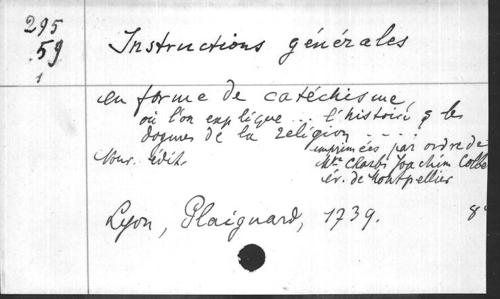 295
59
1
Instructions générales
en forme de catéchisme,
où l'on explique ... l'histoire & les
dogmes de la religion ....
imprimées par ordre de
Nouv. édit. Mre Charles Joachim Colbe
év. de Montpellier
Lyon, Plaignard, 1739. 8°